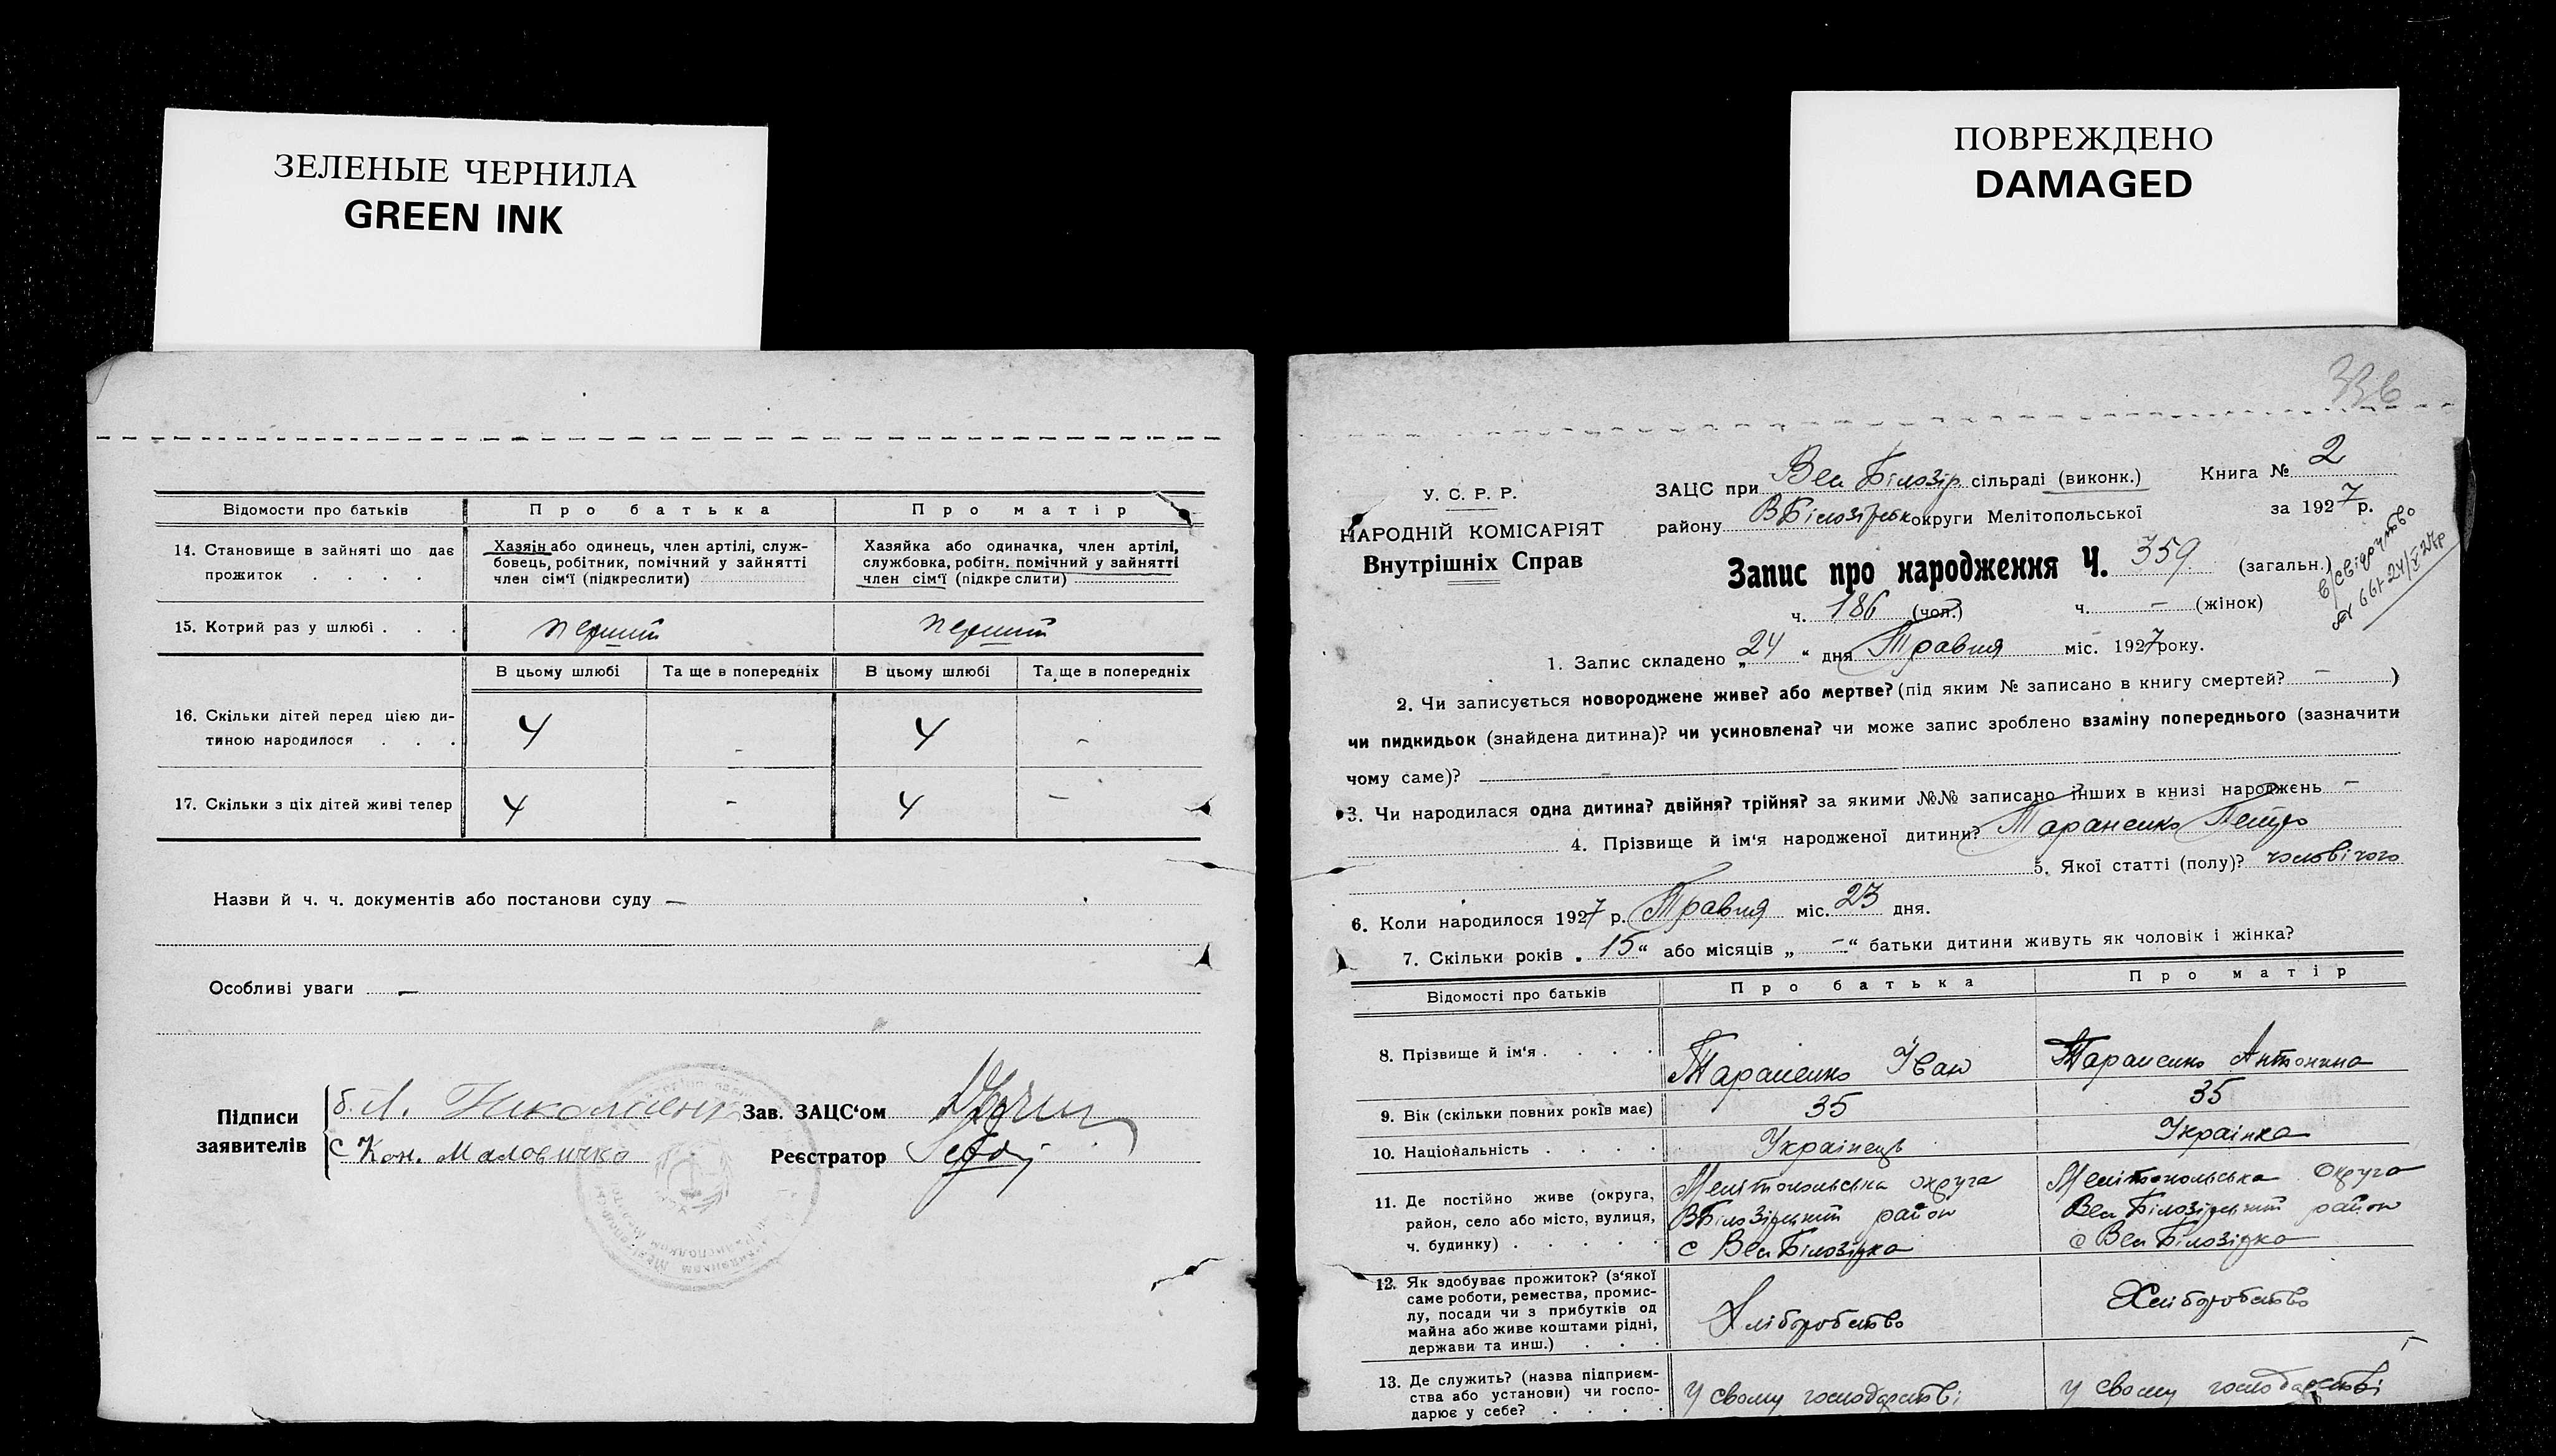 ЗЕЛЕНЫЕ ЧЕРНИЛА
GREEN INK
Відомости про батьків
Про батька
Про матір
14. Становище в зайняті що дає
прожиток . . . .
Хазяін або одинець, член артілі, служ-
бовець, робітник, помічний у зайнятті
член сім'ї (підкреслити)
Хазяйка або одиначка, член артілі,
службовка, робітн. помічний у зайнятті
член сім'ї (підкре слити)
15. Котрий раз у шлюбі . . .
перший
перший
В цьому шлюбі
Та ще в попередніх
В цьому шлюбі
Та ще в попередніх
16. Скільки дітей перед цією ди-
тиною народилося . . .
4
-
4
-
17. Скільки з ціх дітей живі тепер
4
-
4
-
Назви й ч. ч. документів або постанови суду —
Особливі уваги —
Підписи
заявителів
б. Л.
Зав. ЗАЦС'ом
С Кон. Маловичко
Реєстратор
ПОВРЕЖДЕНО
DAMAGED
336
У. С. Р. Р.
НАРОДНІЙ КОМІСАРІЯТ
Внутрішніх Справ
ЗАЦС при Вел Білозір сільраді (виконк.)
Книга № 2
району ВБілозірськ округи Мелітопольської
за 1927 р.
Запис про народження Ч. 359 (загальн.)
ч. 186 (чол.)
ч. - (жінок)
24/V 27р
1. Запис складено „24“ дня Травня міс. 1927 року.
2. Чи записується новороджене живе? або мертве? (під яким № записано в книгу смертей? - )
чи пидкидьок (знайдена дитина)? чи усиновлена? чи може запис зроблено взаміну попереднього (зазначити
чому саме)? -
3. Чи народилася одна дитина? двійня? трійня? за якими №№ записано інших в книзі народжень -
4. Прізвище й ім'я народженої дитини? Тараненко Петро
5. Якої статті (полу)? чоловічого
6. Коли народилося 1927 р. Травня міс. 23 дня.
7. Скільки років „15“ або місяців „-“ батьки дитини живуть як чоловік і жінка?
Відомості про батьків
Про батька
Про матір
8. Прізвище й ім'я . . . .
Тараненко Іван
Тараненко Антонина
9. Вік (скільки повних років має)
35
35
10. Національність . . . .
Українець
Українка
11. Де постійно живе (округа,
район, село або місто, вулиця,
ч. будинку) . . . . .
Мелітопольська округа
ВБілозірський район
с Вел Білозірка
Мелітопольська округа
Вел Білозірський район
с Вел Білозірка
12. Як здобуває прожиток? (з'якої
саме роботи, ремества, промис-
лу, посади чи з прибутків од
майна або живе коштами рідні,
держави та инш.) . . .
Хліборобство
Хліборобство
13. Де служить? (назва підприєм-
ства або установи) чи госпо-
дарює у себе? . . . .
у свому господарстві
у свому господарстві